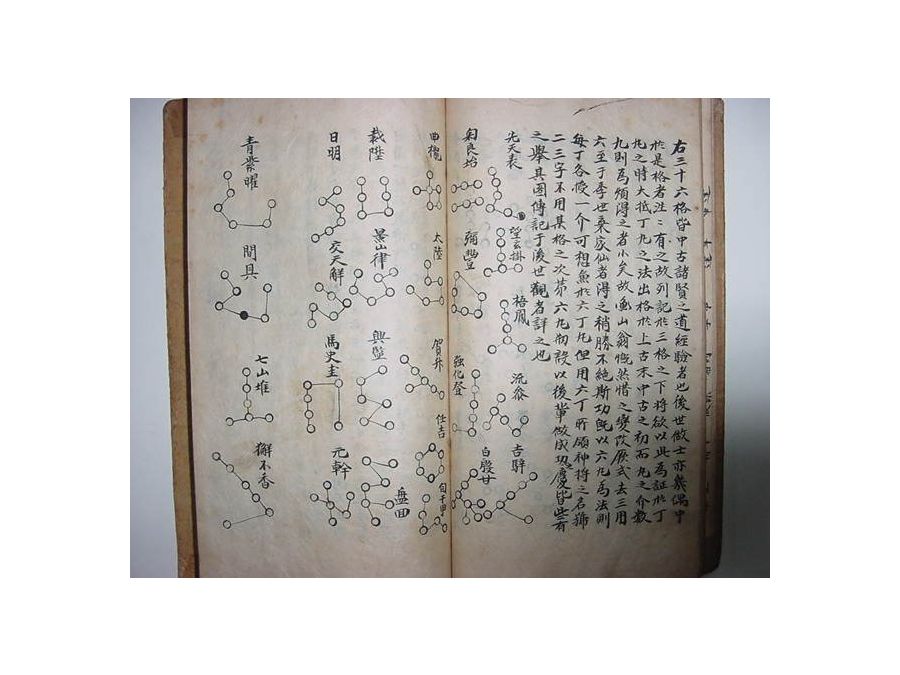 右三十六格皆中古諸賢之道經驗者也後世做士亦幾偶中
於是格者有之故列記於三格之下將欲以此為証於丁
九之時大抵丁九之法出格於上古末中古之初而九之介數
九則為煩得之者小矣故山翁慨然惜之變改厥式去三用
六至于季世乘底仙者得之稍勝不絕斯功旣以六九為法則
每丁各侵一介可想魚於六丁但用六丁所願神將之名號
二三字不用其格之次第六九設以後輩做成功慶皆些有
之擧其圖傳記于後世觀者詳之也
先天表
望玄掛
梧鳳
流
吉
良始
彌豐
強化登
白殷廿
曲欖
太陸
賀升
任吉
自千甲
載陞
景山律
興
盤田
日明
交天解
馬史圭
元幹
青紫曜
間具
七山堆
獬不香